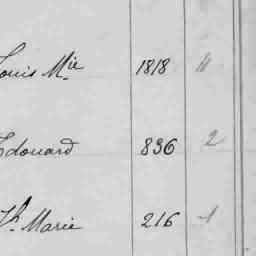 Louis Mie. 1818 11
Edouard 836 2
Vr. Marie 216 1